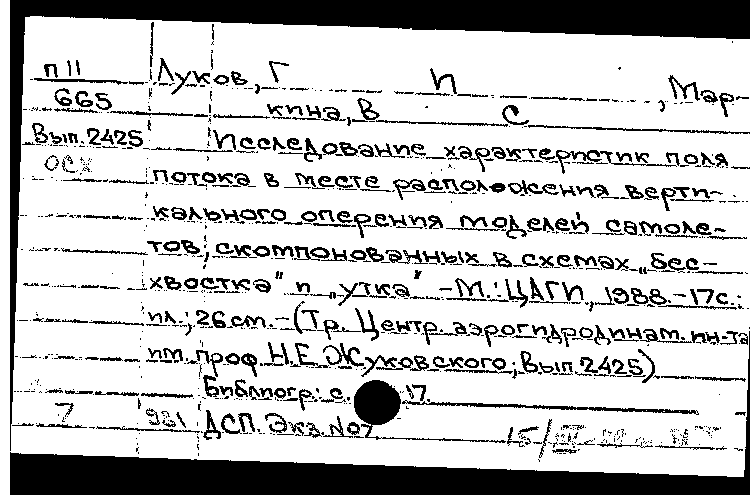 П 11 Луков, Г П , Мар-
665 кина, В С
Вып. 2425 Исследование характеристик поля
ОСХ потока в месте расположения верти-
кального оперения моделей самоле-
тов, скомпонованных в схемах „Бес-
хвостка" и „утка" - М.: ЦАГИ, 1988. - 17с.:
ил.; 26см. - (Тр. Центр. аэрогидродинам. ин-та
им. проф. Н.Е. Жуковского; Вып. 2425)
Библиогр.: с. 17.
7 931 ДСП. Экз. №07 15/III